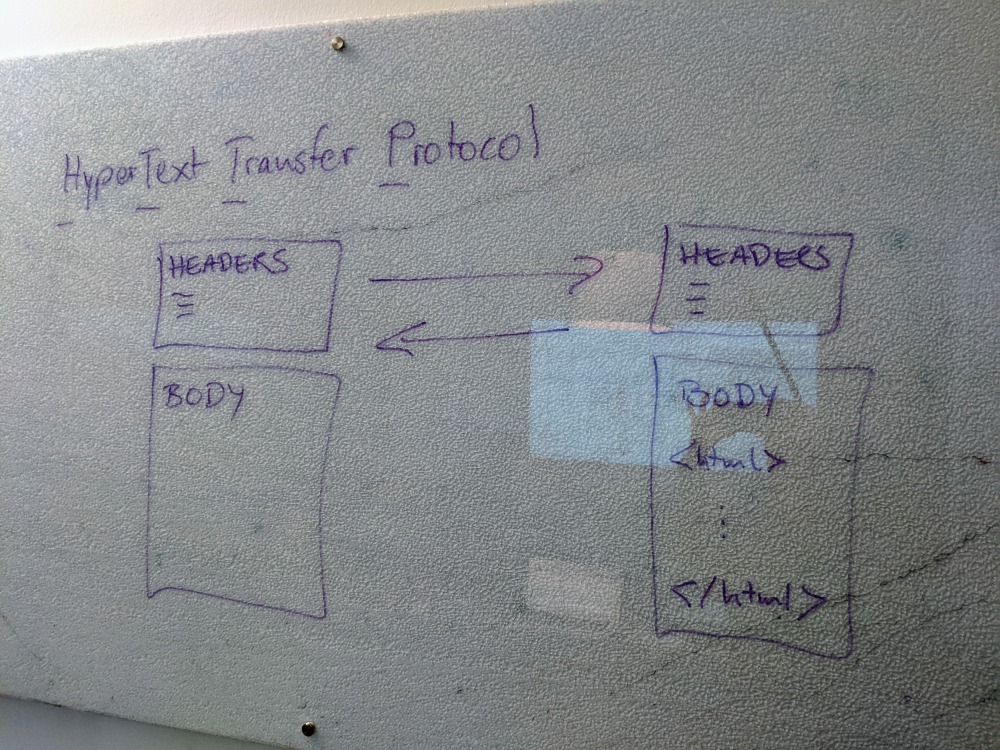 HyperText Transfer Protocol
HEADERS
BODY
HEADERS
BODY
<html>
⋮
</html>